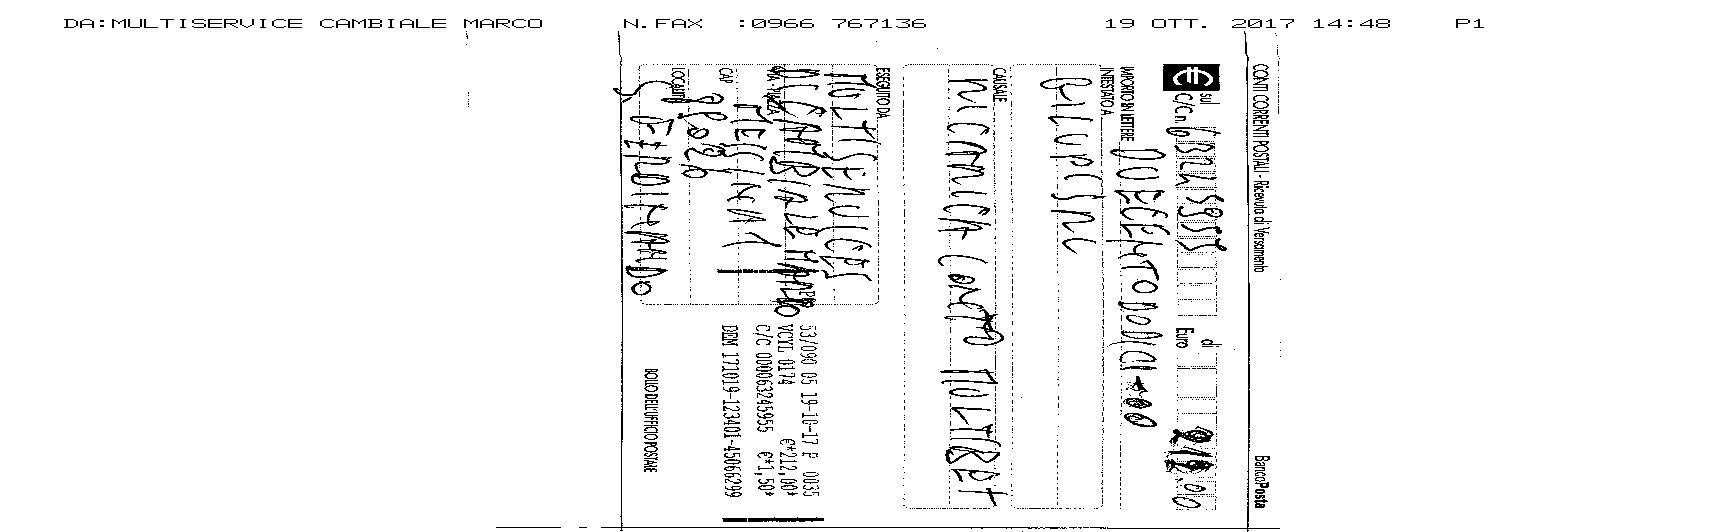 DA:MULTISERVICE CAMBIALE MARCO N.FAX :0966 767136 19 OTT. 2017 14:48 P1
CONTI CORRENTI POSTALI - Ricevuta di Versamento BancoPosta
€ sul C/C n. 63245955 di Euro 212,00
IMPORTO IN LETTERE DUECENTODODICI 00
INTESTATO A
CAUSALE
RICARICA CONTO MULTIBET
ESEGUITO DA
MULTISERVICES
DI CAMBIALE MARCO
VIA - PIAZZA
MESSINA 1
CAP
LOCALITÀ
S FERDINANDO
53/090 05 19-10-17 P 0035
VCYL 0174 €*212,00*
C/C 000063245955 €*1,50*
DDM 171019-123401-45066299
BOLLO DELL'UFFICIO POSTALE